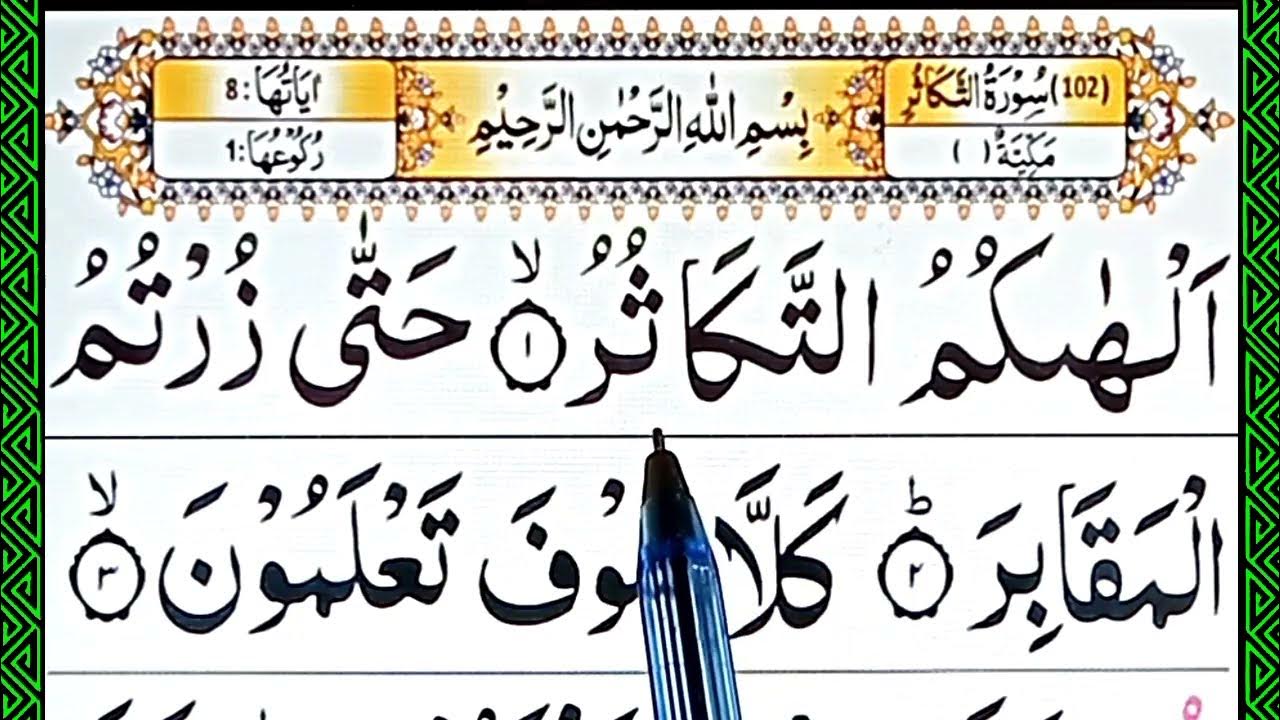 (102) سُوْرَةُ التَّكَاثُرِ
مَكِّيَّةٌ ( )
بِسْمِ اللّٰهِ الرَّحْمٰنِ الرَّحِيْمِ
اٰيَاتُهَا: 8
رُكُوْعُهَا: 1
اَلْهٰىكُمُ التَّكَاثُرُ ۙ﴿١﴾ حَتّٰى زُرْتُمُ
الْمَقَابِرَ ؕ﴿٢﴾ كَلَّا تَعْلَمُوْنَ ۙ﴿٣﴾